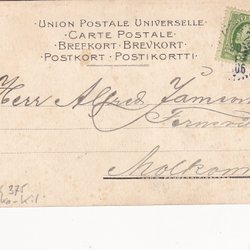 UNION POSTALE UNIVERSELLE
CARTE POSTALE
BREFKORT-BREVKORT
POSTKORT-POSTIKORTTI
06
Herr Alfred
Molkom
375